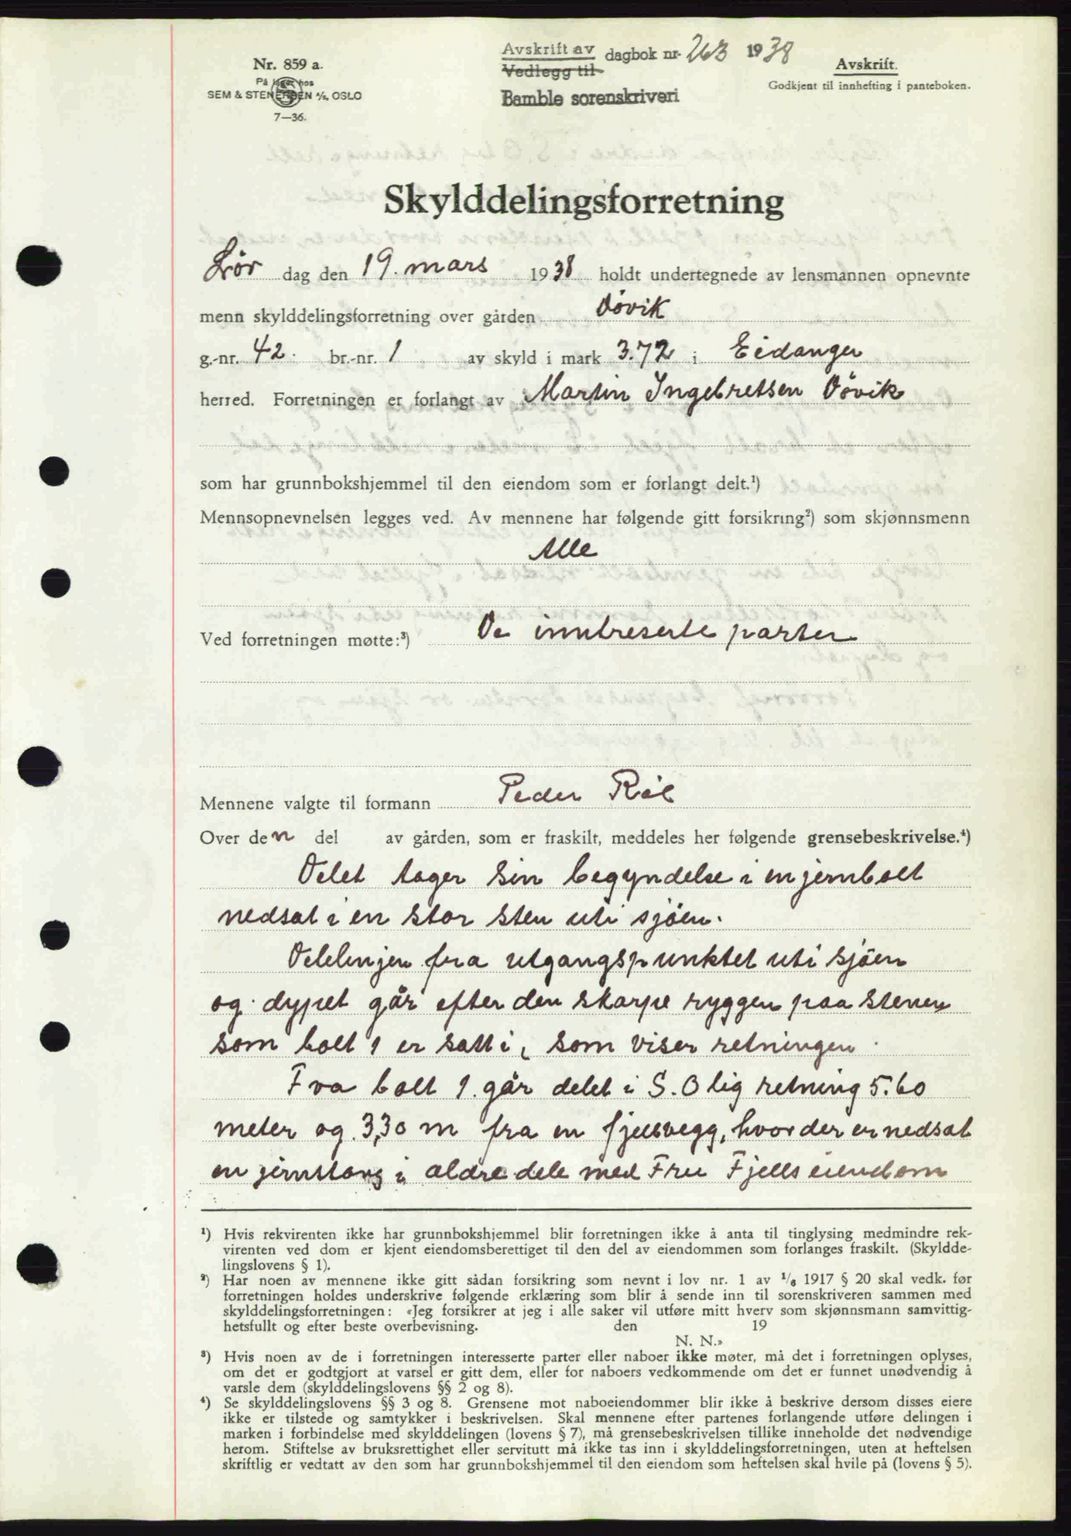 Nr. 859 a.
På lager hos
SEM & STENERSEN A/S, OSLO
7—36.
Avskrift av dagbok nr. 263 1938
Vedlegg til
Bamble sorenskriveri
Avskrift.
Godkjent til innhefting i panteboken.
Skylddelingsforretning
Lør dag den 19. mars 1938 holdt undertegnede av lensmannen opnevnte
menn skylddelingsforretning over gården Døvik
g.-nr. 42. br.-nr. 1 av skyld i mark 3.72 i Eidanger
herred. Forretningen er forlangt av Martin Ingebretsen Døvik
som har grunnbokshjemmel til den eiendom som er forlangt delt.¹)
Mennsopnevnelsen legges ved. Av mennene har følgende gitt forsikring²) som skjønnsmenn
Alle
Ved forretningen møtte:³) De inntreserte parter
Mennene valgte til formann Peder
Over den del av gården, som er fraskilt, meddeles her følgende grensebeskrivelse.⁴)
Delet tager sin begyndelse i en jernbolt
nedsat i en stor sten uti sjøen.
Delelinjen fra utgangspunktet uti sjøen
og dypet går efter den skarpe ryggen paa stenen,
som bolt 1 er satt i, som viser retningen.
Fra bolt 1. går delet i S.O lig retning 5.60
meter og 3,30 m fra en fjellvegg, hvor der er nedsat
en jernstang i ældre dele med Fru Fjells eiendom
¹) Hvis rekvirenten ikke har grunnbokshjemmel blir forretningen ikke å anta til tinglysing medmindre rek-
virenten ved dom er kjent eiendomsberettiget til den del av eiendommen som forlanges fraskilt. (Skyldde-
lingslovens § 1).
²) Har noen av mennene ikke gitt sådan forsikring som nevnt i lov nr. 1 av 1/6 1917 § 20 skal vedk. før
forretningen holdes underskrive følgende erklæring som blir å sende inn til sorenskriveren sammen med
skylddelingsforretningen: «Jeg forsikrer at jeg i alle saker vil utføre mitt hverv som skjønnsmann samvittig-
hetsfullt og efter beste overbevisning. den 19
N. N.»
³) Hvis noen av de i forretningen interesserte parter eller naboer ikke møter, må det i forretningen oplyses,
om det er godtgjort at varsel er gitt dem, eller for naboers vedkommende om det er funnet unødvendig å
varsle dem (skylddelingslovens §§ 2 og 8).
⁴) Se skylddelingslovens §§ 3 og 8. Grensene mot naboeiendommer blir ikke å beskrive dersom disses eiere
ikke er tilstede og samtykker i beskrivelsen. Skal mennene efter partenes forlangende utføre delingen i
marken i forbindelse med skylddelingen (lovens § 7), må grensebeskrivelsen tillike inneholde det nødvendige
herom. Stiftelse av bruksrettighet eller servitutt må ikke tas inn i skylddelingsforretningen, uten at heftelsen
skriftlig er vedtatt av den som har grunnbokshjemmel til den eiendom som heftelsen skal hvile på (lovens § 5).